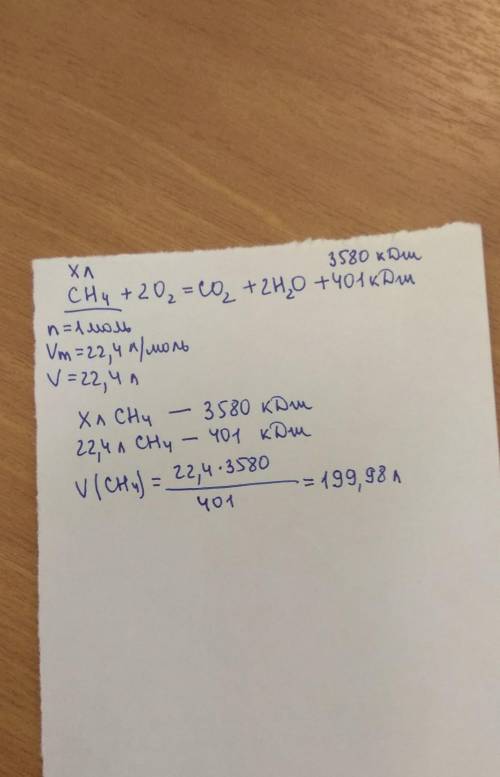 Xл 3580 кДж
CH₄ + 2O₂ = CO₂ + 2H₂O + 401 кДж
n = 1 моль
Vm = 22,4 л/моль
V = 22,4 л
Xл CH₄ — 3580 кДж
22,4 л CH₄ — 401 кДж
V(CH₄) = 22,4 · 3580 / 401 = 199,98 л